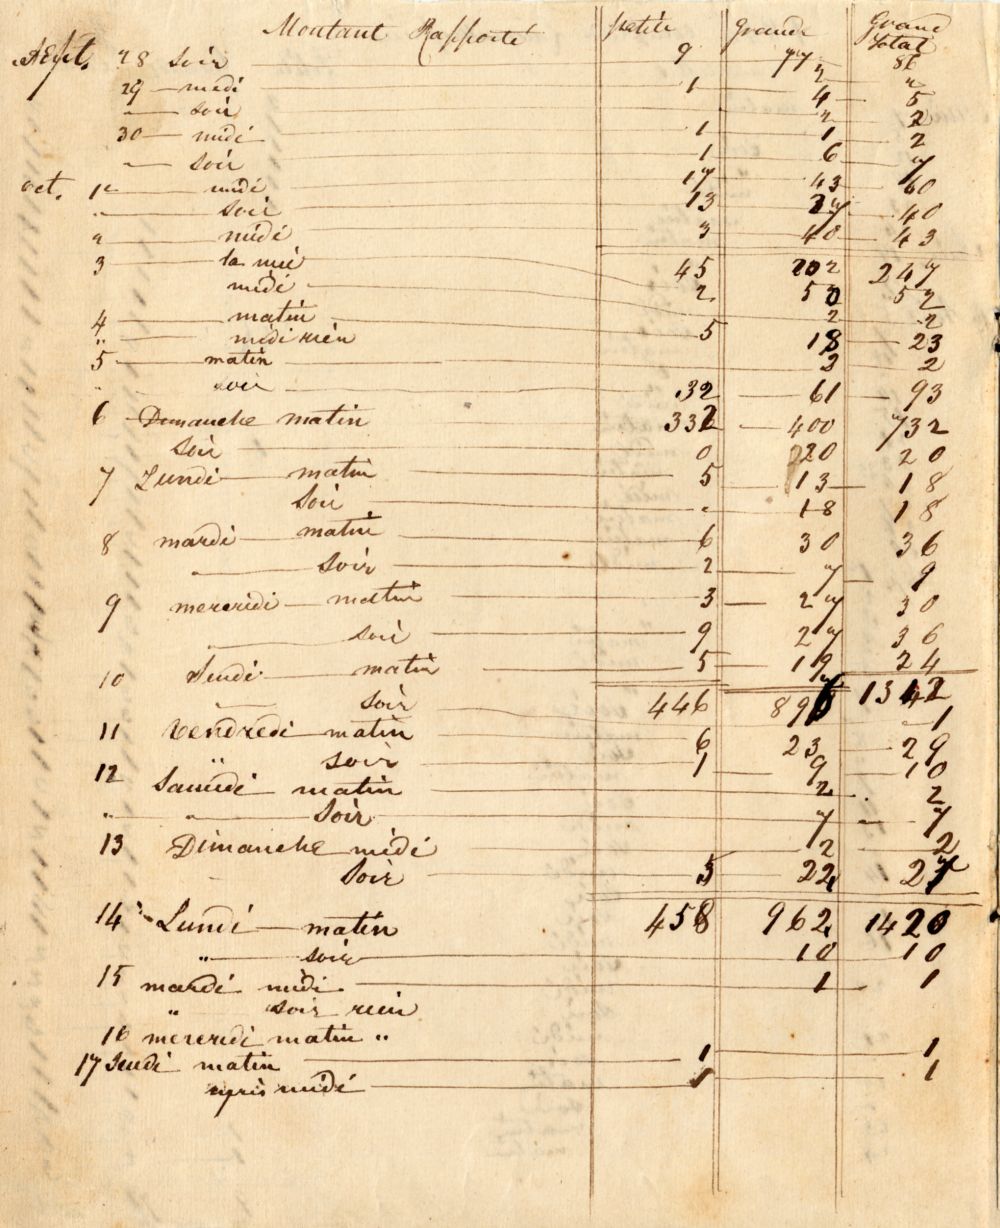 Montant Rapporté petite Grande Grand total
Sept. 28 soir 9 77 86
29 — midi " "
" — soir 1 4 5
30 — midi " 2
" — soir 1 1 2
oct. 1er — midi 1 6 7
" soir 17 43 60
" midi 13 27 40
3 la 3 40 43
45 202 247
midi 2 50 52
4 — matin 2 2
" midi rien 5 18 23
5 — matin 2 2
" soir 32 61 93
6 Dimanche matin 332 400 732
Soir 0 20 20
7 Lundi matin 5 13 18
Soir " 18 18
8 mardi matin 6 30 36
" Soir 2 7 9
9 mercridi matin 3 27 30
soir 9 27 36
10 Jeudi matin 5 19 24
soir 446 896 1342
11 Vendredi matin 1
" soir 6 23 29
12 Samedi matin 1 9 10
" " Soir 2 2
13 Dimanche midi 7 7
Soir 2 2
5 22 27
14 Lundi matin 458 962 1420
" soir 10 10
15 mardi midi 1 1
" soir rien
16 mercridi matin "
17 Jeudi matin 1 1
apris midi 1 1